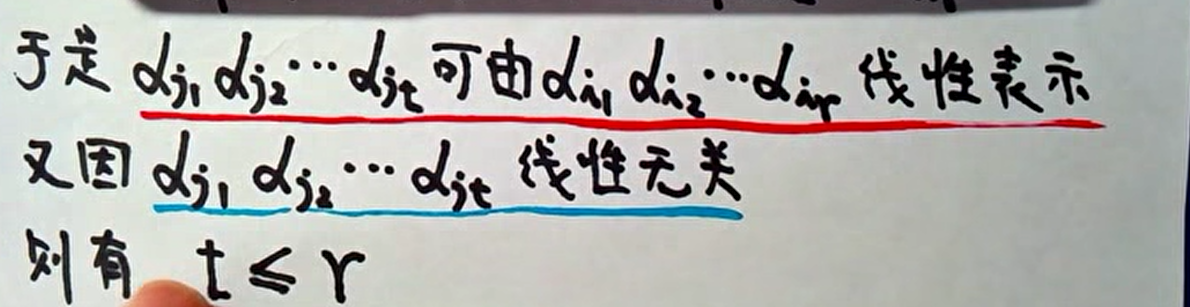 于是 αj₁ αj₂ ⋯ αjt 可由 αi₁ αi₂ ⋯ αir 线性表示
又因 αj₁ αj₂ ⋯ αjt 线性无关
则有 t ≤ r